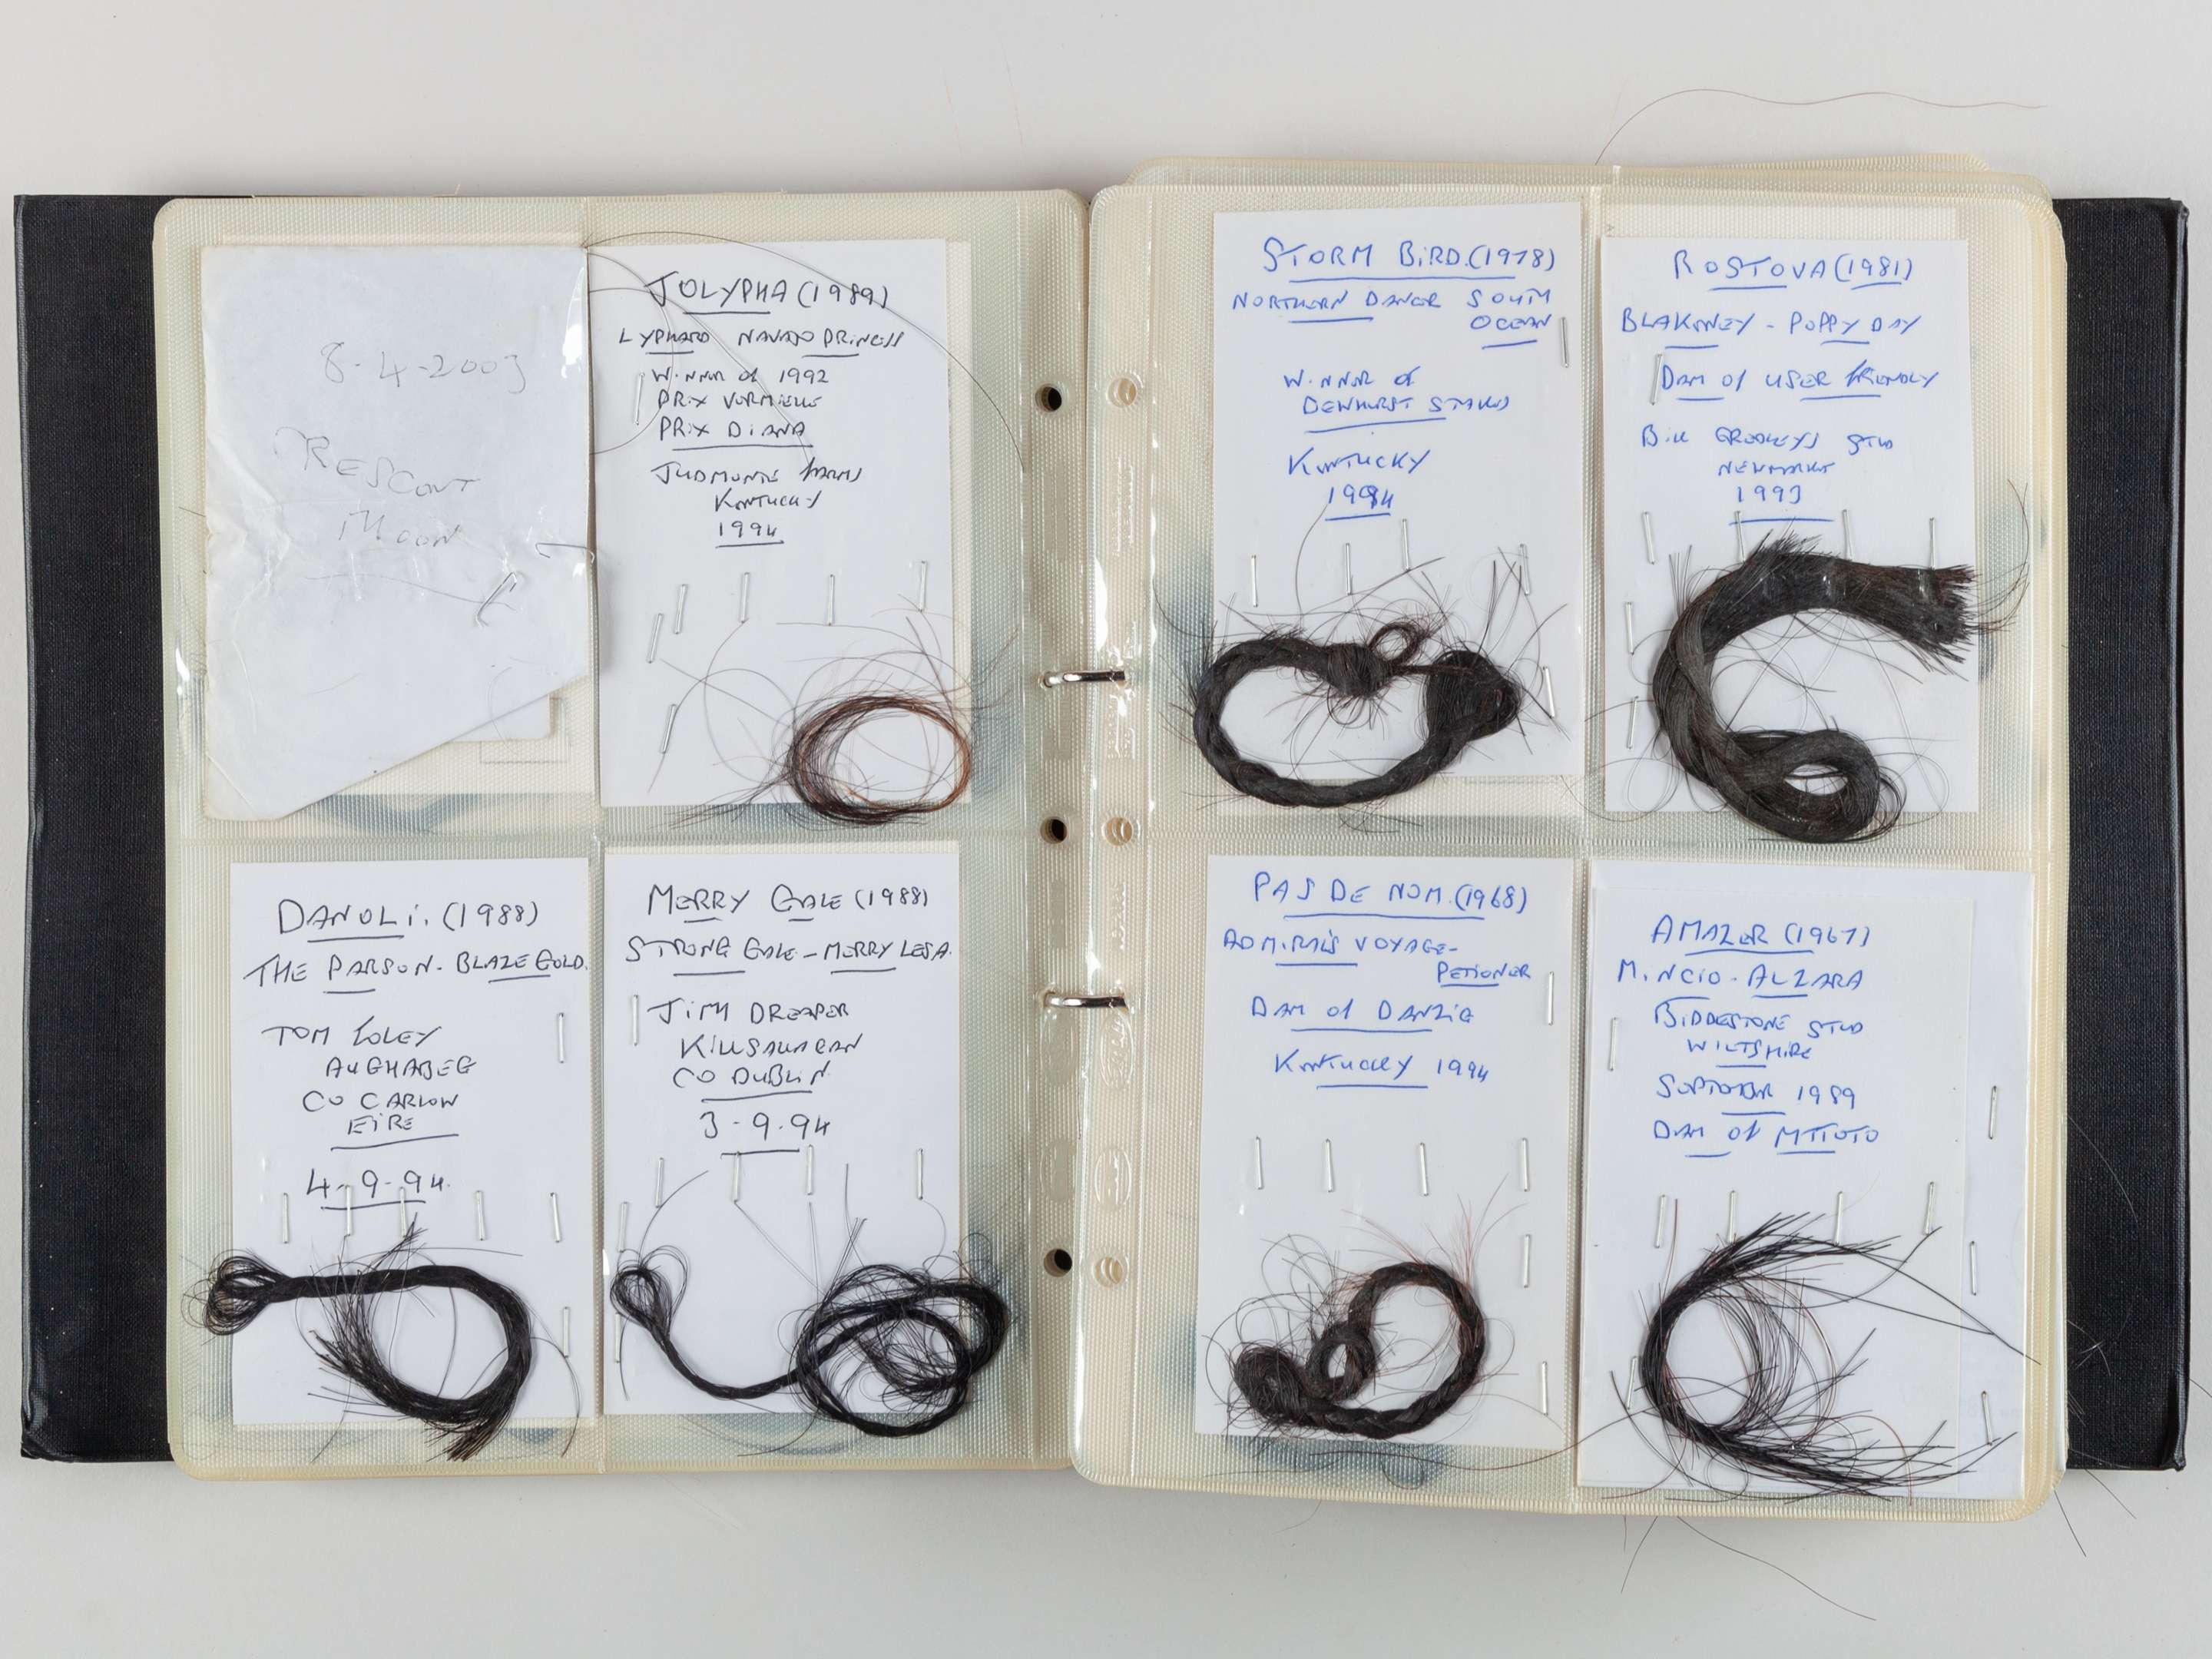 8-4-2003
CRESCENT
MOON
JOLYPHA (1989)
LYPHARD NAVAJO PRINCESS
WINNER of 1992
PRIX VERMIELLE
PRIX DIANA
JUDMONTE FARMS
KENTUCKY
1994
DANOLI. (1988)
THE PARSON - BLAZE GOLD.
TOM FOLEY
AUGHABEG
CO CARLOW
EIRE
4-9-94.
MERRY GALE (1988)
STRONG GALE - MERRY LESA.
JIM DREAPER
KILLSALLAGAN
CO DUBLIN.
3-9-94
STORM BIRD. (1978)
NORTHERN DANCER SOUTH
OCEAN
WINNER of
DEWHURST STAKES
KENTUCKY
1994
ROSTOVA (1981)
BLAKENEY - POPPY DAY
DAM of USER FRIENDLY
BILL GREDLEYS STUD
NEWMARKET
1993
PAS DE NOM. (1968)
ADMIRALS VOYAGE -
PETIONER
DAM of DANZIG
KENTUCKY 1994
AMAZER (1967)
MINCIO - ALZARA
BIDDESTONE STUD
WILTSHIRE
SEPTEMBER 1989
DAM of MTOTO